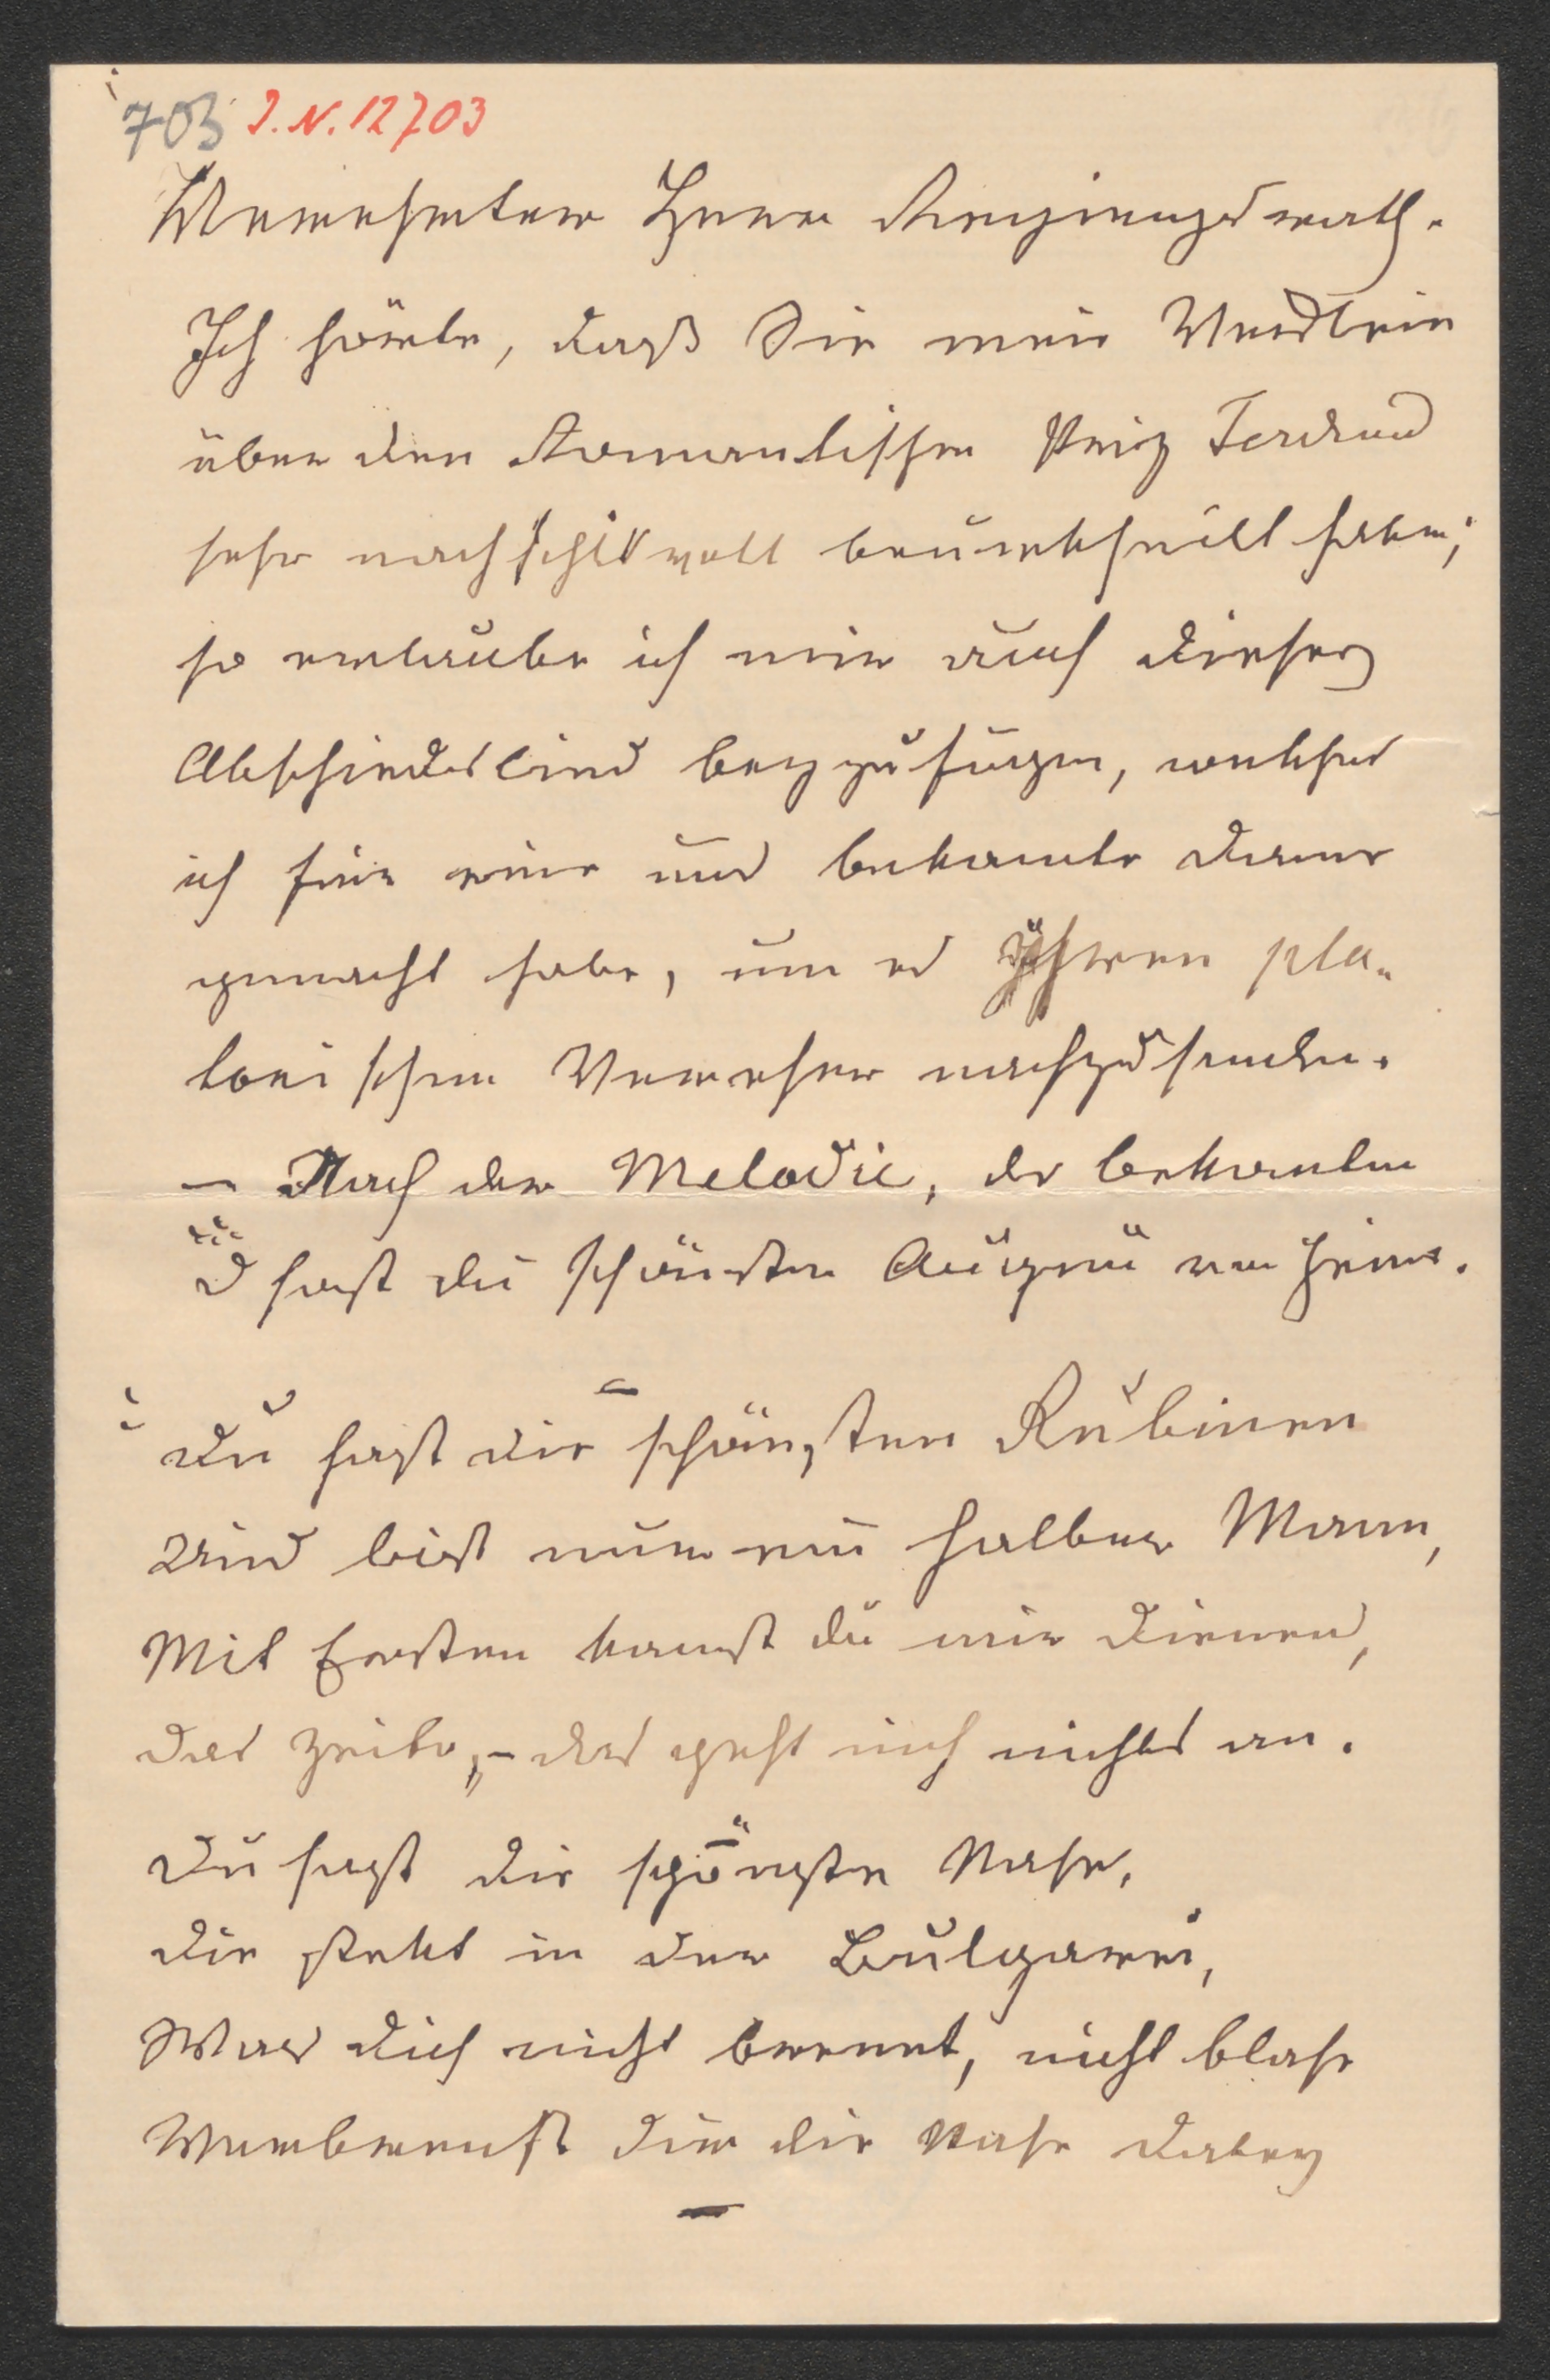 703 I.N. 12703
Verehrter Herr Regirungsrath.
Ich hörte, daß Sie mein Verslein
über den Romantischen Prinz Ferdinand
sehr nachsichtsvoll beurtheilt haben;
so erlaube ich mir auch dieses
Abschiedslied beyzufügen, welches
ich für eine uns bekannte Dame
gemacht habe, um es ihrem pla-
tonischen Verehrer nachzusenden.
– Nach der Melodie, der bekannten
D hast die schönsten Augen von Heine.
Du hast die schönsten Rubinen
Und bist nur ein halber Mann,
Mit Ersten kannst du mir dienen,
Das Zweite, – das geht mich nichts an.
Du hast die schönste Nase,
Die steckt in der Bulgarei,
Was dich nicht brennt, nicht blase
Verbrennst dir die Nase dabey